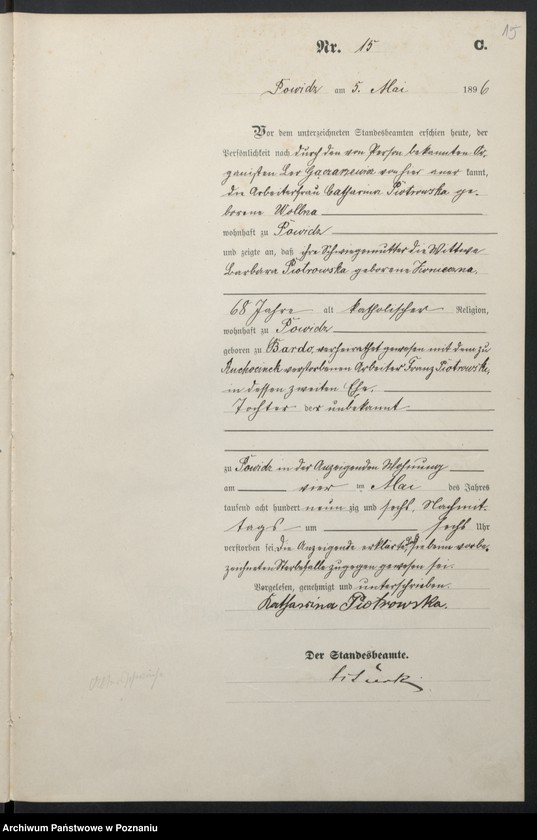 15
Nr. 15 C.
Powidz am 5. Mai 1896
Vor dem unterzeichneten Standesbeamten erschien heute, der
Persönlichkeit nach durch den von Person bekannten Or-
ganisten Leo von hier aner kannt,
die Arbeiterfrau Catharina Piotrowska ge-
borene Wollna
wohnhaft zu Powidz
und zeigte an, daß ihre Schwiegermutter die Wittwe
Barbara Piotrowska geborene Konieczna
68 Jahre alt katholischer Religion,
wohnhaft zu Powidz
geboren zu Bardo, verheirathet gewesen mit dem zu
Ruchocinek verstorbenen Arbeiter Franz Piotrowski,
in dessen zweiten Ehe.
Tochter der unbekannt
zu Powidz in der Anzeigenden Wohnung
am vier ten Mai des Jahres
tausend acht hundert neun zig und sechs, Nachmit-
tags um sechs Uhr
verstorben sei, die Anzeigende erklärte, daß sie beim vorbe-
zeichneten Sterbefalle zugegen gewesen sei.
Vorgelesen, genehmigt und unterschrieben.
Katharzina Piotrowska.
Der Standesbeamte.
Archiwum Państwowe w Poznaniu